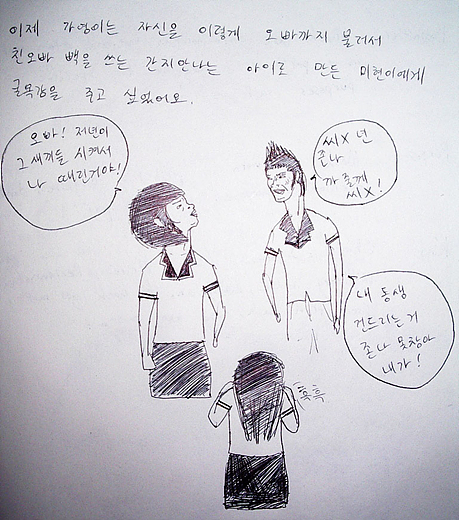 이제 가영이는 자신을 이렇게 오빠까지 불러서
친오빠 빽을 쓰는 간지안나는 아이로 만든 미현이에게
굴욕감을 주고 싶었어요.
오빠! 저년이
그 새끼들 시켜서
나 때린거야!
씨X 년
존나
까 줄께
씨X!
내 동생
건드리는 거
존나 못참아
내가!
흑흑